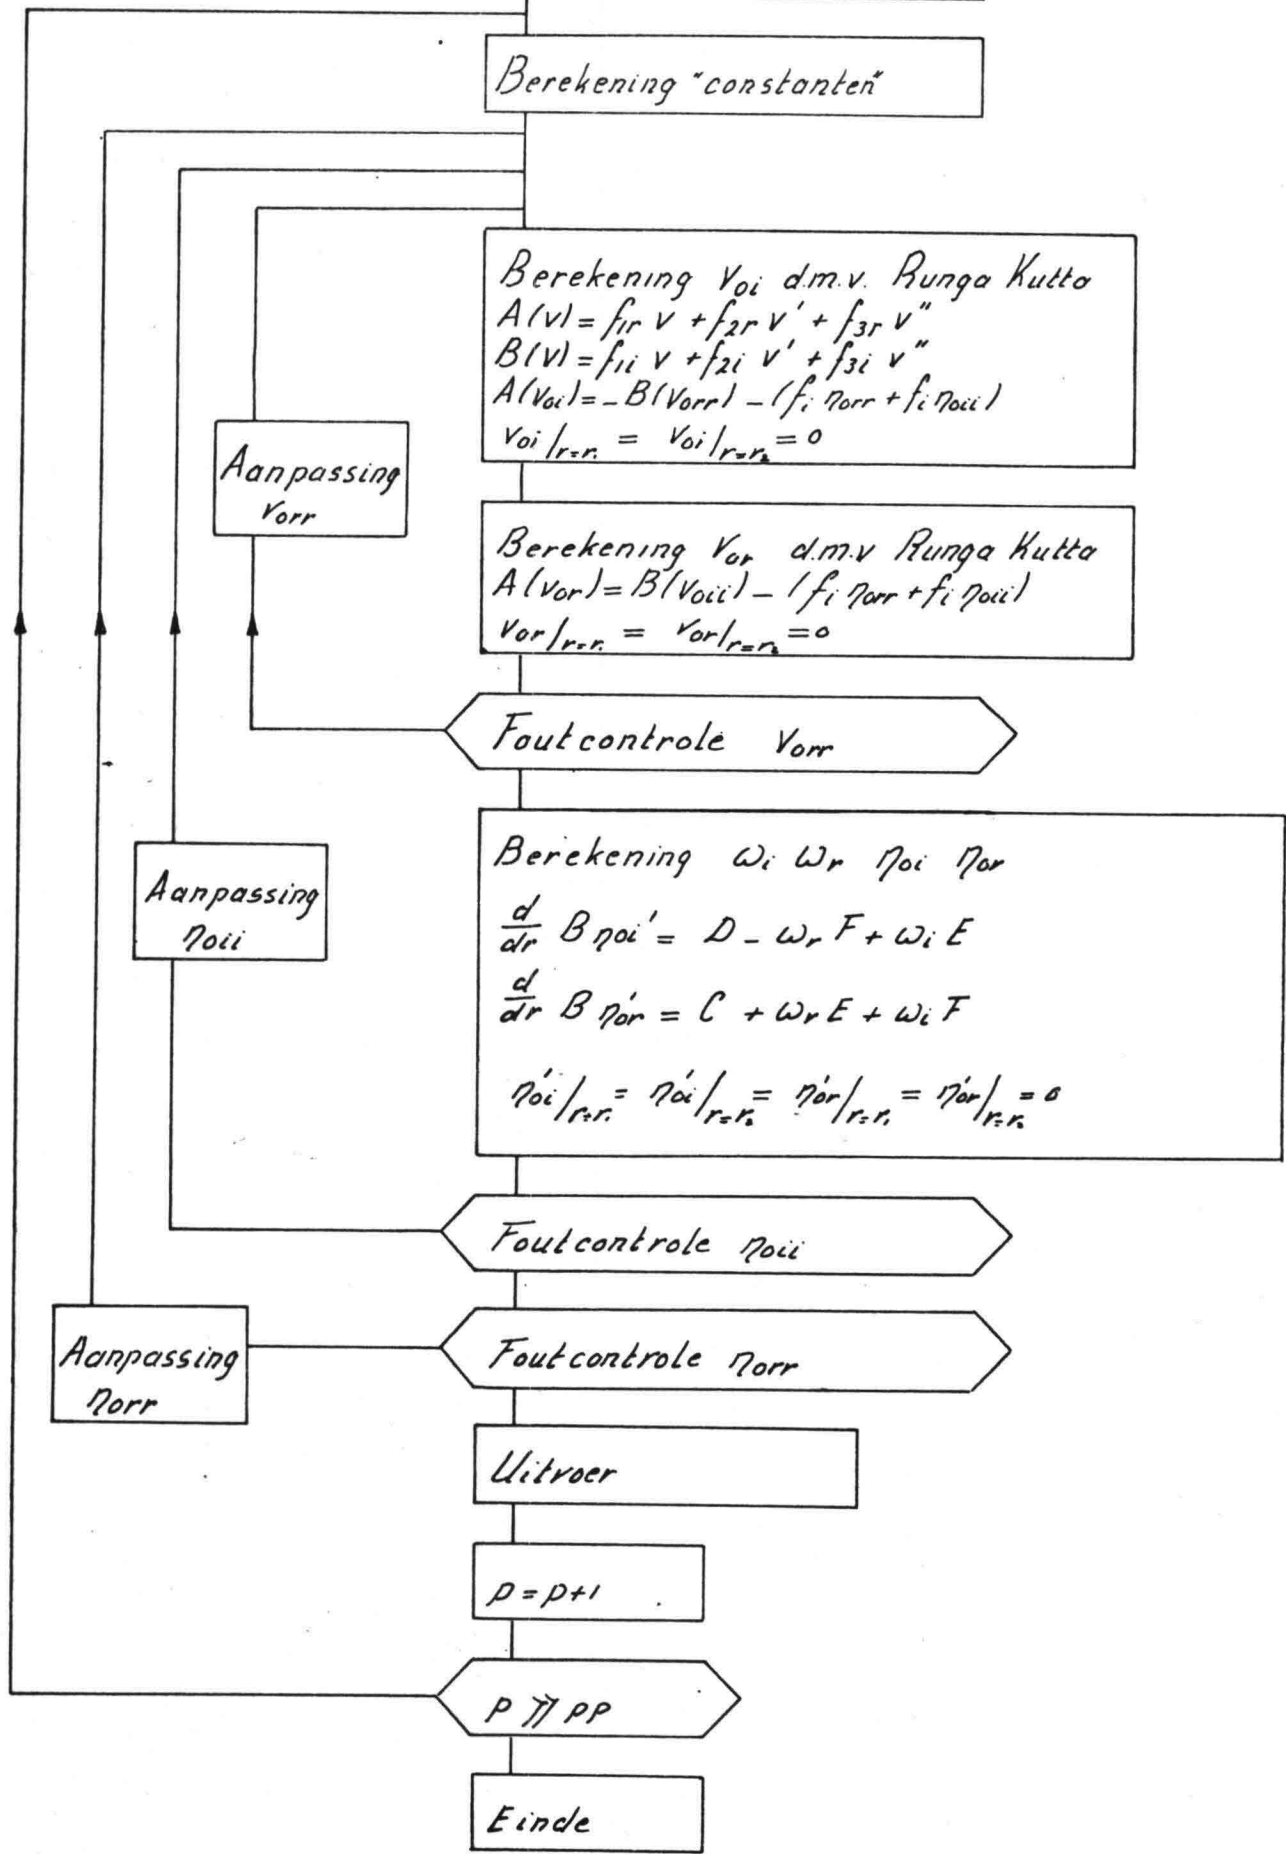 Berekening "constanten"
Berekening voi d.m.v. Runga Kutta
A(v) = f1r v + f2r v' + f3r v"
B(v) = f1i v + f2i v' + f3i v"
A(voi) = - B(vorr) - (fi ηorr + fi ηoii)
voi/r=r1 = voi/r=r2 = 0
Aanpassing
vorr
Berekening vor d.m.v Runga Kutta
A(vor) = B(voii) - (fi ηorr + fi ηoii)
vor/r=r1 = vor/r=r2 = 0
Foutcontrole vorr
Berekening ωi ωr ηoi ηor
d/dr B ηoi' = D - ωr F + ωi E
d/dr B η'or = C + ωr E + ωi F
η'oi/r=r1 = η'oi/r=r2 = η'or/r=r1 = η'or/r=r2 = 0
Aanpassing
ηoii
Foutcontrole ηoii
Foutcontrole ηorr
Aanpassing
ηorr
Uitvoer
p = p+1
p ≫ pp
Einde